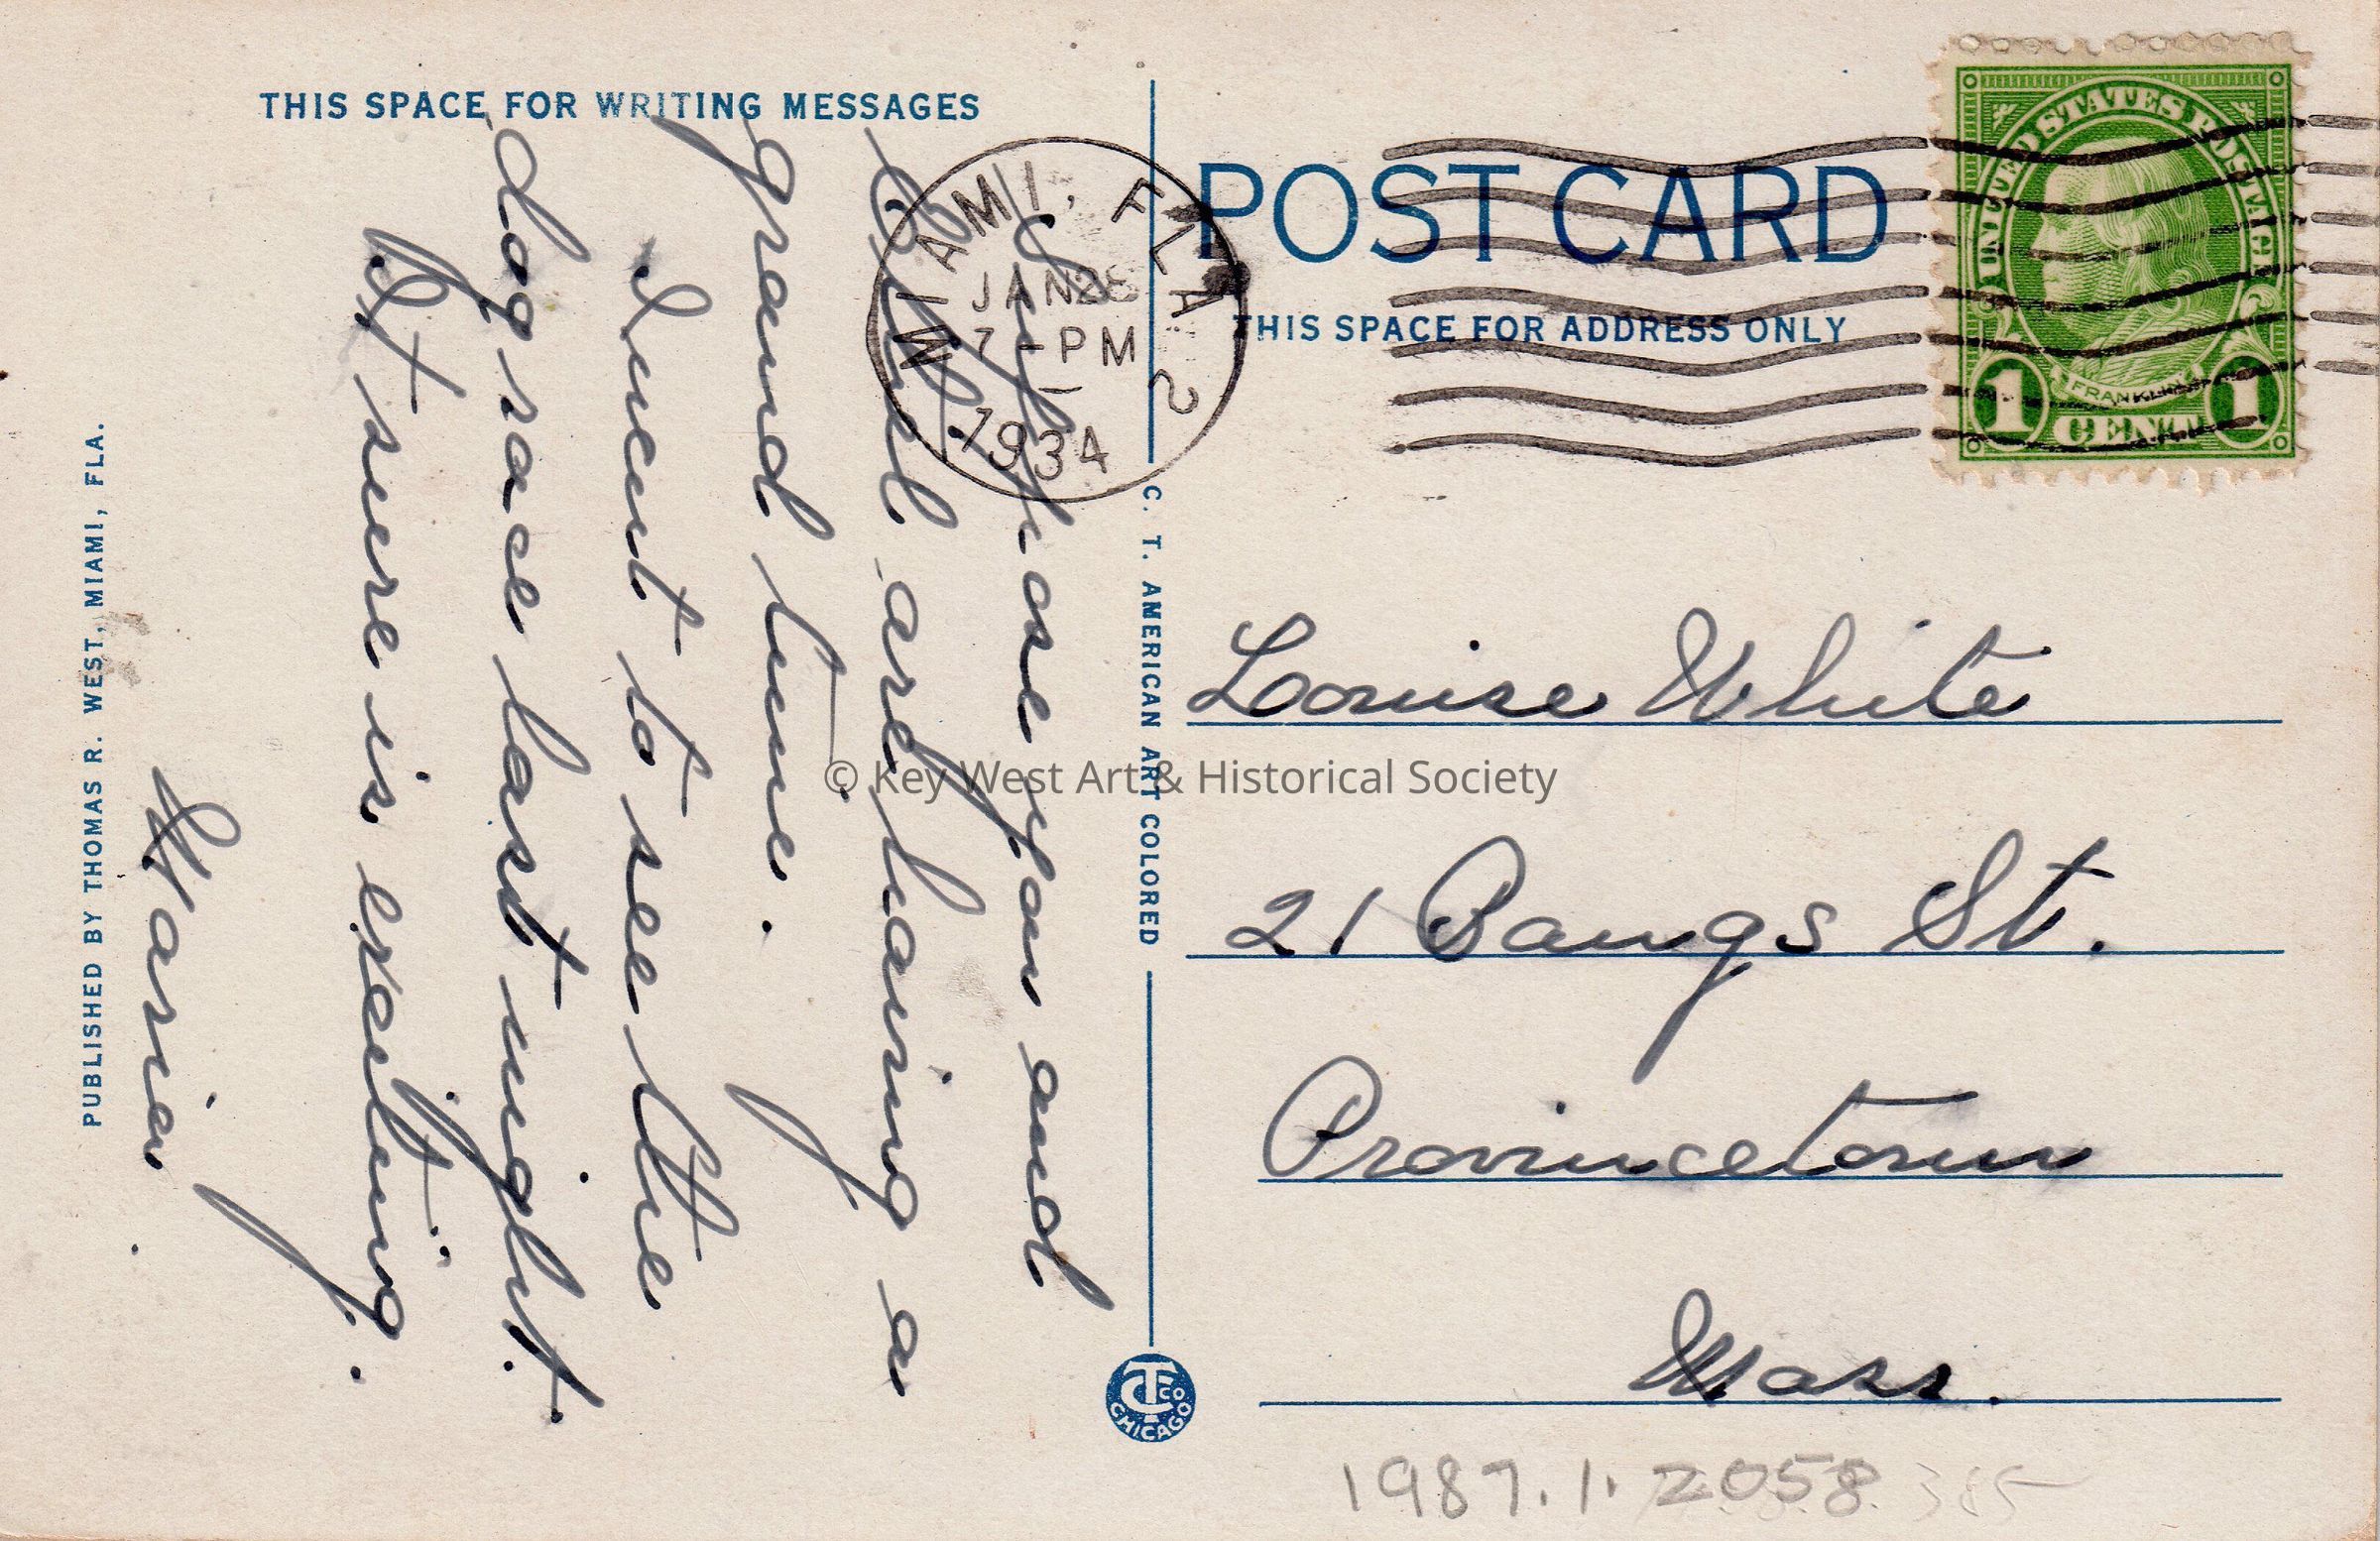 THIS SPACE FOR WRITING MESSAGES
Suppose you and
are having a
grand time.
I went to see the
dog race last night.
It sure is exciting.
PUBLISHED BY THOMAS R. WEST, MIAMI, FLA.
MIAMI, FLA. 2
JAN 28
7 - PM
1934
C. T. AMERICAN ART COLORED
CTCO
CHICAGO
POST CARD
THIS SPACE FOR ADDRESS ONLY
UNITED STATES POSTAGE
FRANKLIN
1 CENT 1
Louise White
21 Bangs St.
Provincetown
Mass.
1987.1.2058
385
© Key West Art & Historical Society